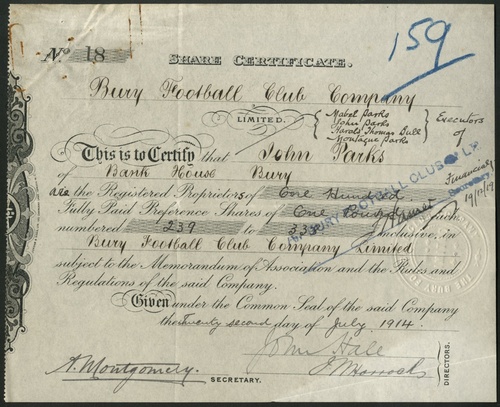 159
No. 18
SHARE CERTIFICATE.
Bury Football Club Company
LIMITED.
Mabel Parks
John Parks
Harold Thomas Bull
Montague Parks
Executors
of
This is to Certify that John Parks
of Bank House Bury
are the Registered Proprietors of One Hundred
Fully Paid Preference Shares of One Pound each
numbered 239 to 338 Inclusive, in
Bury Football Club Company Limited
subject to the Memorandum of Association and the Rules and
Regulations of the said Company.
BURY FOOTBALL CLUB Co LD.
Financial
Secretary
Given under the Common Seal of the said Company
the Twenty second day of July 1914.
John Hall
J Horrocks
DIRECTORS.
A. Montgomery. SECRETARY.